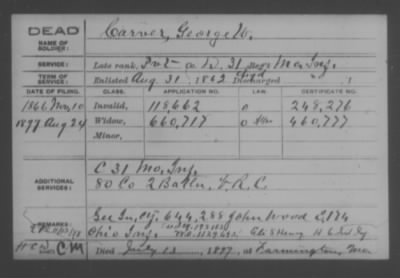 DEAD
NAME OF SOLDIER:
Carver, George W.
SERVICE:
Late rank, Pvt Co. 31 Reg't Mo. Inf.
TERM OF SERVICE:
Enlisted Aug 31, 1862 Discharged
DATE OF FILING. CLASS. APPLICATION NO. LAW. CERTIFICATE NO.
1866 Nov. 10 Invalid, 118,662 0 248,276
1897 Aug 24 Widow, 660,717 0 460,777
Minor,
ADDITIONAL SERVICES:
C 31 Mo. Inf.
80 Co 2 Batln. V.R.C.
REMARKS:
See In. Of. 644,288 John Wood
Ohio Inf.
CM Died July 13, 1897, at Farmington, Mo